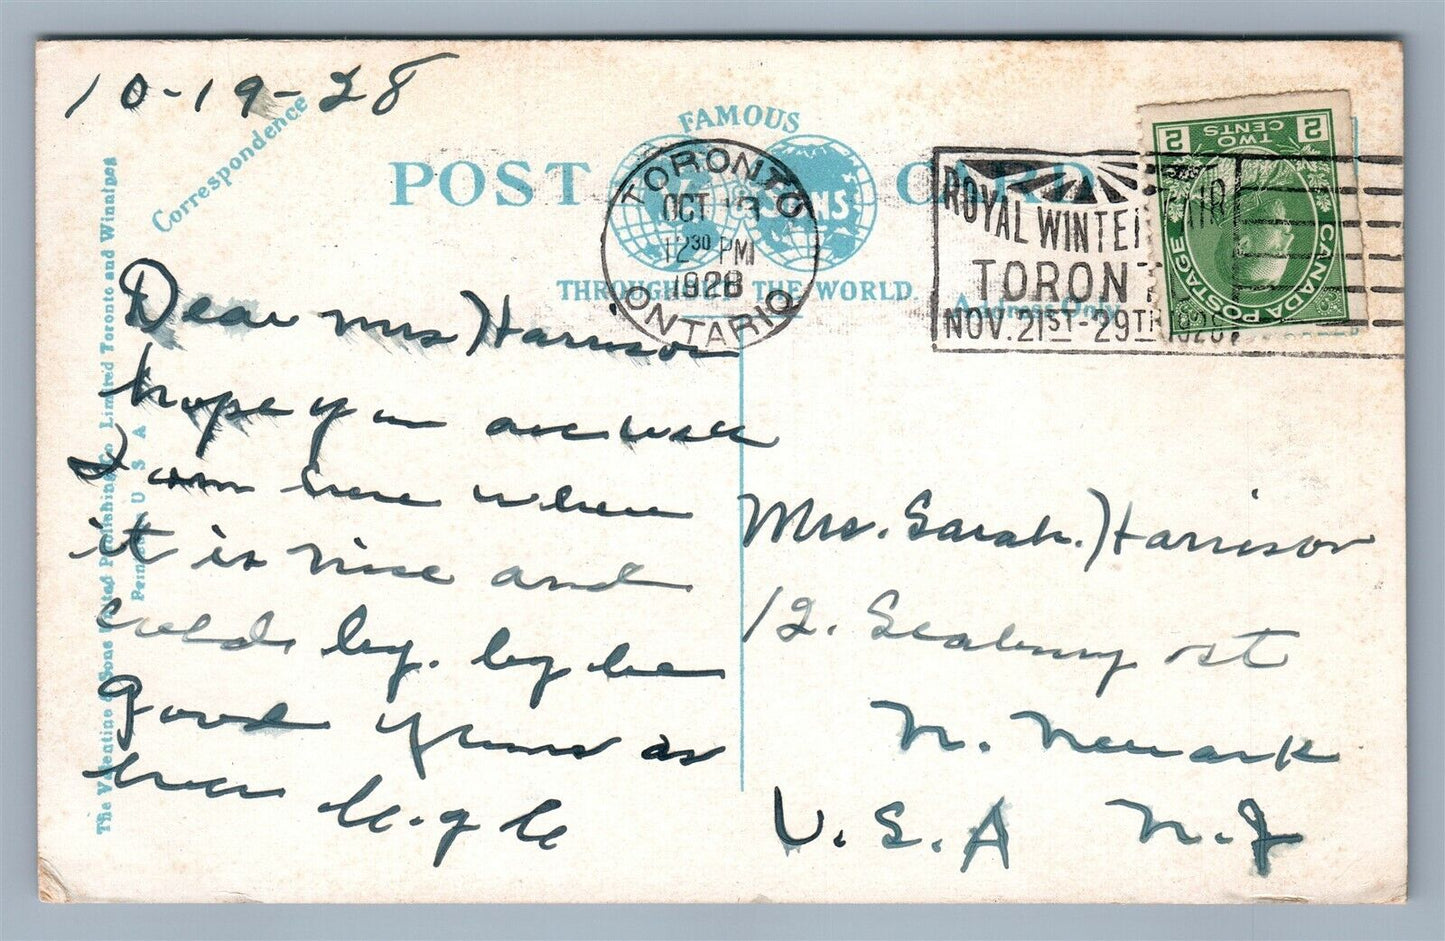 10-19-28
Correspondence
FAMOUS
POST CARD
& SONS
THROUGHOUT THE WORLD.
Address Only
TORONTO
OCT
12 30 PM
1928
ONTARIO
ROYAL WINTER FAIR
TORONTO
NOV. 21ST - 29TH 1928.
2 TWO CENTS 2
CANADA POSTAGE
The Valentine & Sons United Publishing Co Limited Toronto and Winnipeg
Printed U S A
Dear Mrs Harrison
hope you are well
I am here where
it is nice and
cold by. by be
good yours as
ever
Mrs. Sarah. Harrison
12. Seabury st
N. Newark
U.S.A N.J